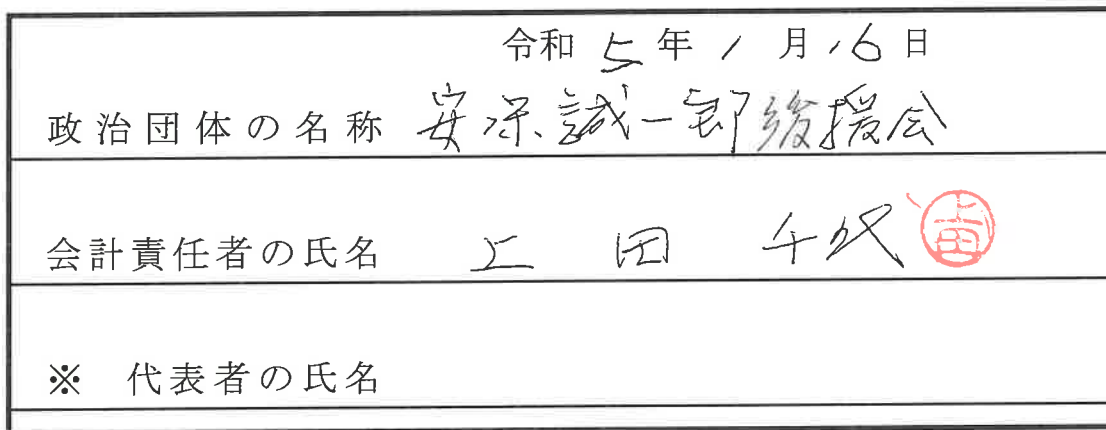 令和5年1月16日
政治団体の名称 安保誠一郎後援会
会計責任者の氏名 上田 千代 上田
※ 代表者の氏名